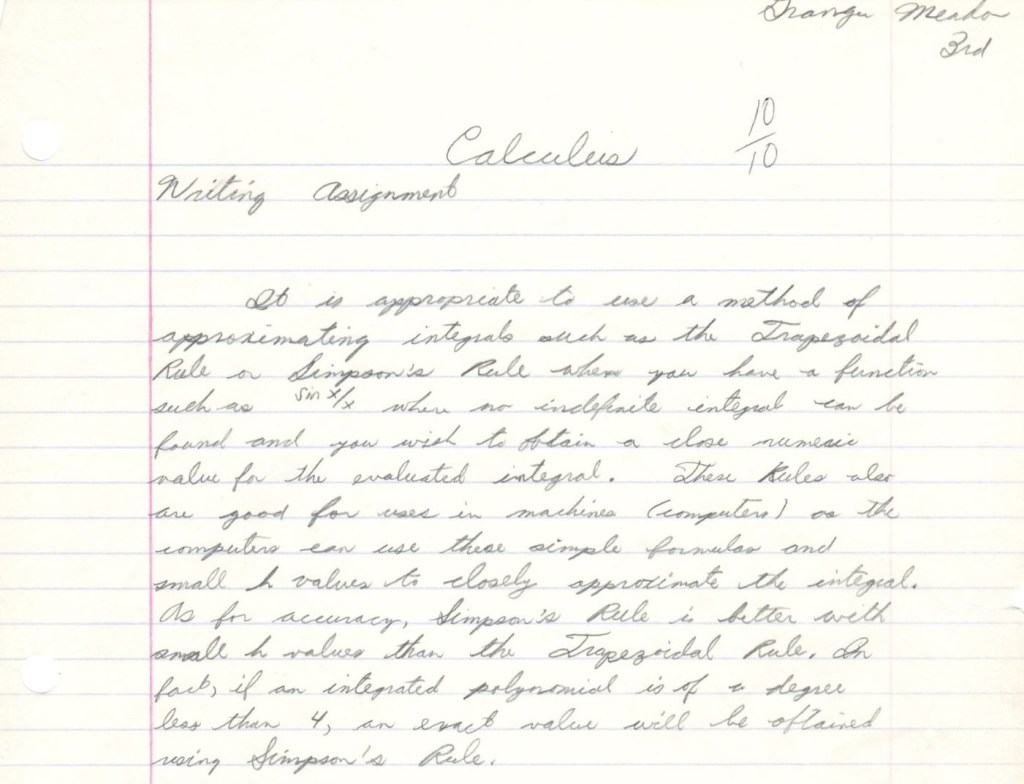 Meador
3rd
10/10
Calculus
Writing Assignment
It is appropriate to use a method of
approximating integrals such as the Trapezoidal
Rule or Simpson's Rule when you have a function
such as sin x/x where no indefinite integral can be
found and you wish to obtain a close numeric
value for the evaluated integral. These Rules also
are good for uses in machines (computers) as the
computers can use these simple formulas and
small h values to closely approximate the integral.
As for accuracy, Simpson's Rule is better with
small h values than the Trapezoidal Rule. In
fact, if an integrated polynomial is of a degree
less than 4, an exact value will be obtained
using Simpson's Rule.